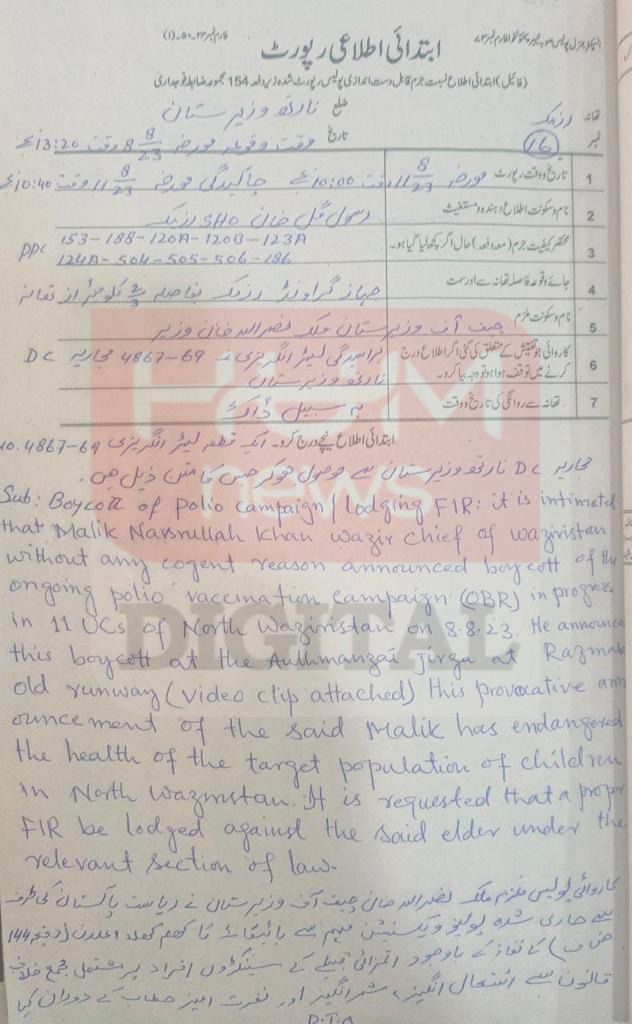 فارم نمبر ۲۳-۵۰-(۱)
ابتدائی اطلاعی رپورٹ
(فائیل) ابتدائی اطلاع نسبت جرم قابل دست اندازی پولیس رپورٹ شدہ زیر دفعہ 154 مجموعہ ضابطہ فوجداری
تھانہ رزمک ضلع نارتھ وزیرستان
نمبر 16 تاریخ وقت وقوعہ مورخہ 8/8/23 وقت 13:20 بجے
1 تاریخ و وقت رپورٹ مورخہ 11/8/23 وقت 10:00 بجے چاکیدگی مورخہ 11/8/23 وقت 10:40 بجے
2 نام و سکونت اطلاع دہندہ و مستغیث رسول گل خان SHO رزمک
3 مختصر کیفیت جرم (معہ دفعہ) حال اگر کچھ لیا گیا ہو۔ 153-188-120A-120B-123A
124A-504-505-506-186 PPC
4 جائے وقوعہ فاصلہ تھانہ سے اور سمت جہاز گراونڈ رزمک بفاصلہ 2/3 کلومیٹر از تھانہ
5 نام و سکونت ملزم چیف آف وزیرستان ملک نصراللہ خان وزیر
6 کاروائی جو تفتیش کے متعلق کی گئی اگر اطلاع درج کرنے میں توقف ہوا ہو تو وجہ بیان کرو۔ برسیدگی لیٹر انگریزی 4867-69 مجاریہ DC
نارتھ وزیرستان
7 تھانہ سے روانگی کی تاریخ و وقت بہ سبیل ڈاک
ابتدائی اطلاع نیچے درج کرو۔ ایک قطعہ لیٹر انگریزی No. 4867-69
مجاریہ DC نارتھ وزیرستان سے موصول ہوکر جس کا متن ذیل ہیں۔
Sub: Boycott of Polio Campaign/lodging FIR: it is intimated
that Malik Narsnullah Khan wazir chief of waziristan
without any cogent reason announced boycott of the
ongoing polio vaccination campaign (OBR) in progress
in 11 UCs of North Waziristan on 8.8.23. He announce
this boycott at the Authmanzai jirga at Razmak
old runway (video clip attached) this provocative ann
ouncement of the said Malik has endangered
the health of the target population of children
in North Wazirstan. It is requested that a proper
FIR be lodged against the said elder under the
relevant section of law.
کاروائی پولیس ملزم ملک نصراللہ خان چیف آف وزیرستان نے ریاست پاکستان کی طرف
سے جاری شدہ پولیو ویکسینیشن مہم سے بائیکاٹ کا کھلم کھلا اعلان (دفعہ 144
ض ف) کا نفاذ کے باوجود اتمانزئی قبیلے کے سینکڑوں افراد پر مشتمل مجمع خلاف
قانون سے اشتعال انگیز، شر انگیز اور نفرت آمیز خطاب کے دوران کیا
P.T.O
HBM
news
DIGITAL